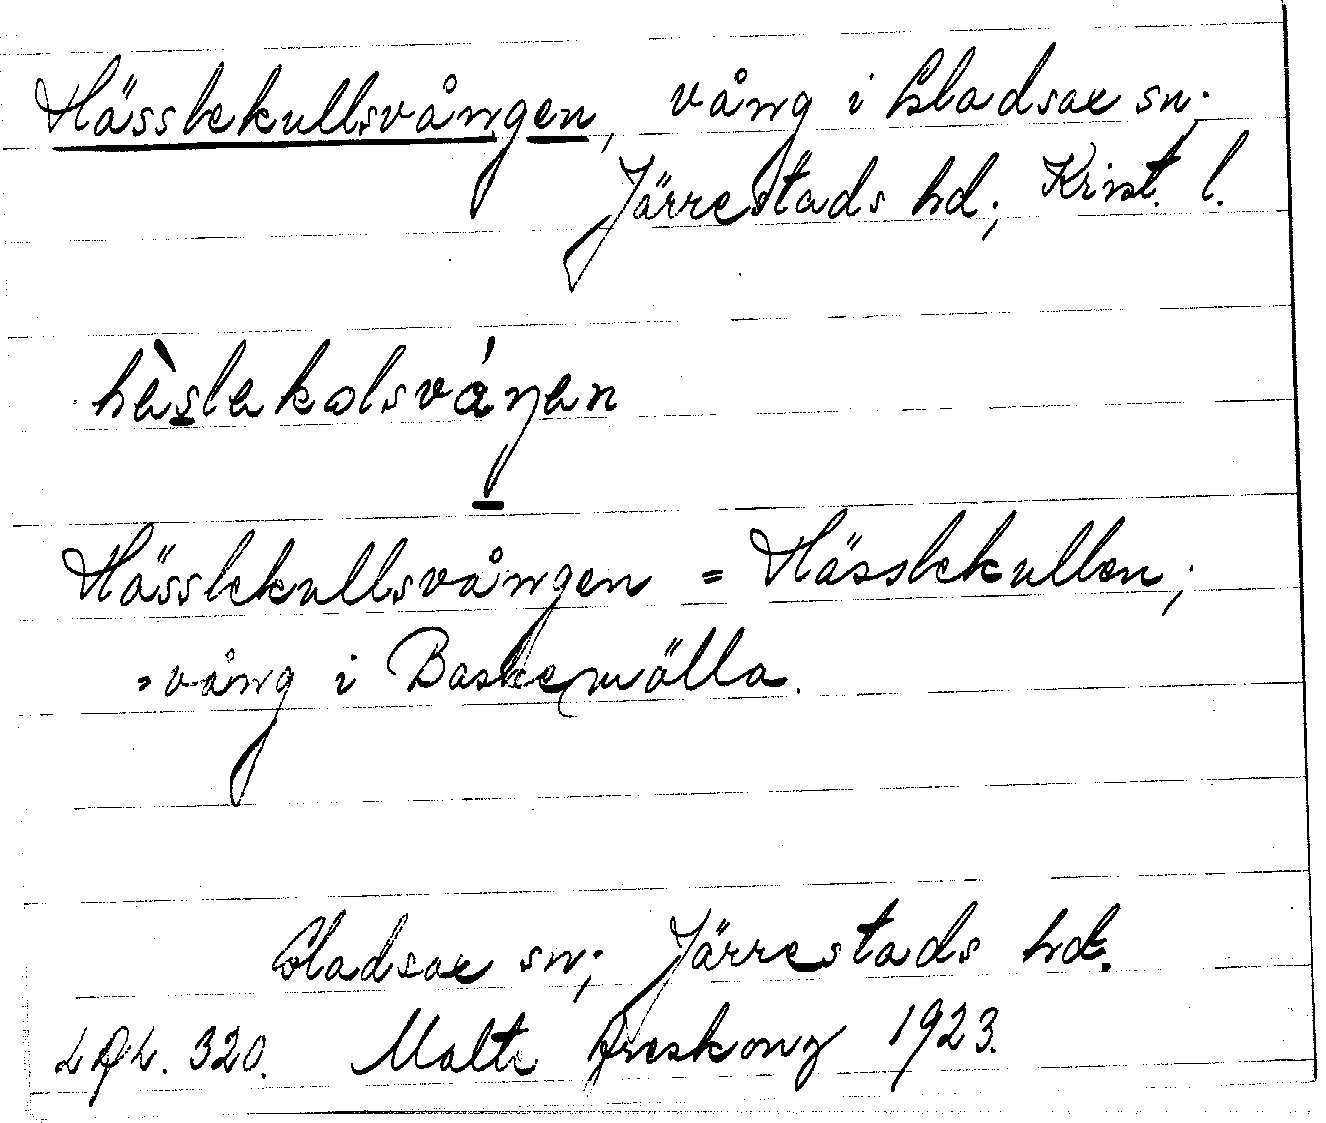 Hässlekullsvången, vång i Gladsax sn.
Järrestads hd; Krist. l.
hèslekolsváŋen
Hässlekullsvången = Hässlekullen;
=vång i Baskemölla.
Gladsax sn; Järrestads hd.
320. Malte 1923.